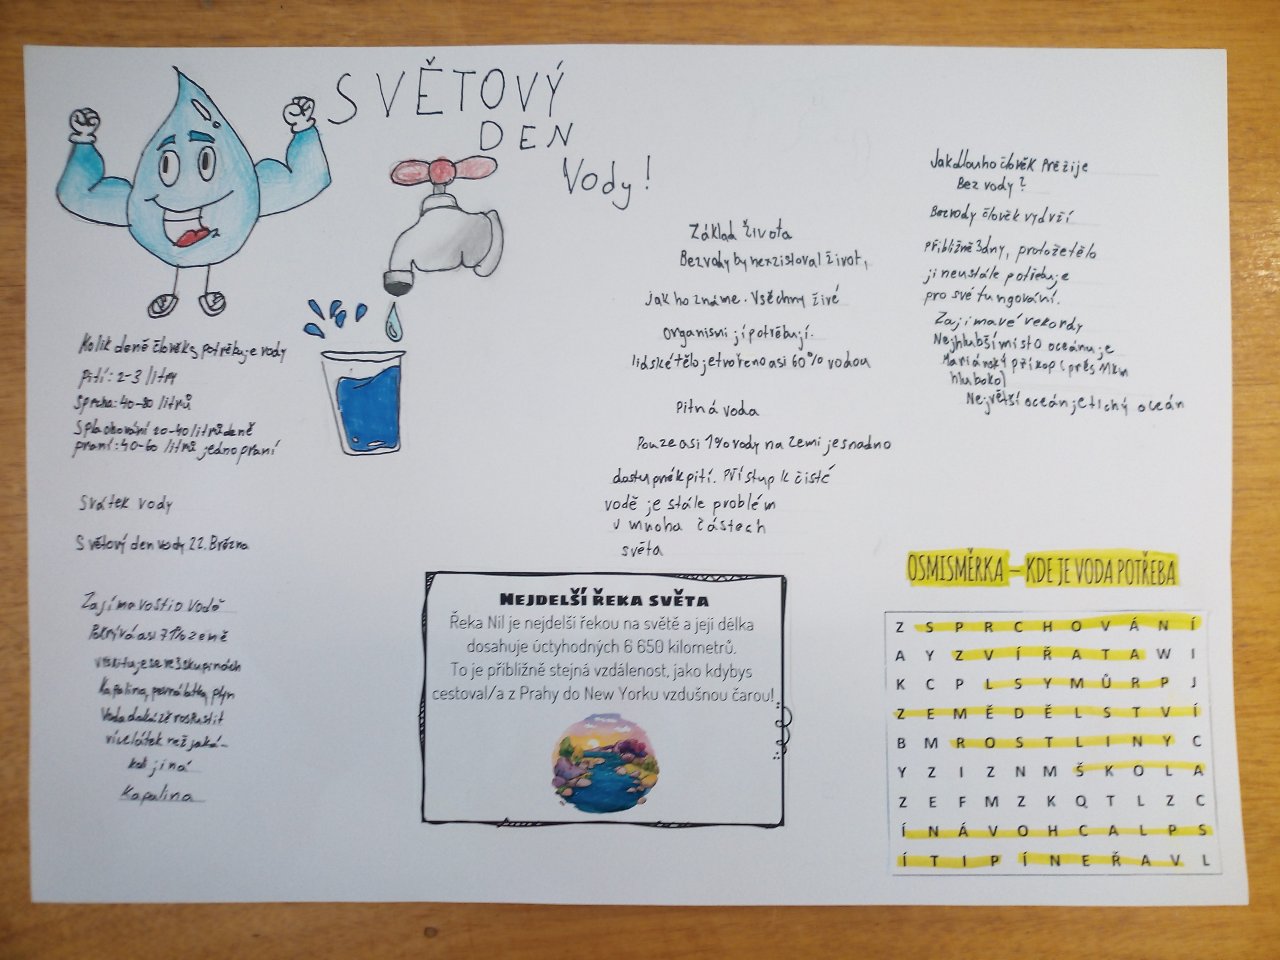 SVĚTOVÝ
DEN
Vody!
Kolik deně člověk potřebuje vody
pití: 2-3 litry
Sprcha: 40-80 litrů
Splachování 20-40 litrů deně
praní: 40-60 litrů jedno praní
Svátek vody
Světový den vody 22. Března
Zajímavosti o vodě
Pokrývá asi 71% země
vyskituje se ve 3 skupinách
Kapalina, pevná látka, plyn
Voda dokáže rospustit
více látek než jaká-
koli jiná
Kapalina
Základ života
Bez vody by nexzistoval život,
jak ho známe. Všechny živé
organismi jí potřebují.
lidské tělo je tvořeno asi 60% vodou
Pitná voda
Pouze asi 1% vody na Zemi je snadno
dostupné k pití. Přístup k čisté
vodě je stále problém
v mnoha částech
světa
Jak dlouho člověk Přežije
Bez vody?
Bez vody člověk vydrží
Přibližně 3 dny, protože tělo
ji neustále potřebuje
pro své fungování.
Zajímavé rekordy
Nejhlubší místo oceánu je
Mariánský příkop (přes 11km
hluboko)
Největší oceán je tichý oceán
NEJDELŠÍ ŘEKA SVĚTA
Řeka Nil je nejdelší řekou na světě a její délka
dosahuje úctyhodných 6 650 kilometrů.
To je přibližně stejná vzdálenost, jako kdybys
cestoval/a z Prahy do New Yorku vzdušnou čarou!
OSMISMĚRKA – KDE JE VODA POTŘEBA
Z S P R C H O V Á N Í
A Y Z V Í Ř A T A W I
K C P L S Y M Ů R P J
Z E M Ě D Ě L S T V Í
B M R O S T L I N Y C
Y Z I Z N M Š K O L A
Z E F M Z K Q T L Z C
Í N Á V O H C A L P S
Í T I P Í N E Ř A V L